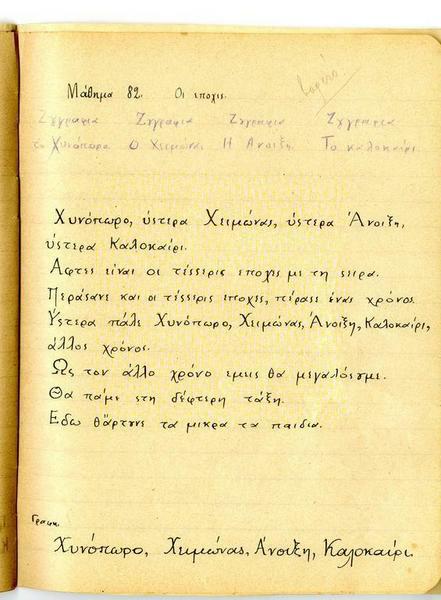 Μάθημα 82. Οι εποχες.
Ζγγραφια Ζγγραφια Ζγγραφια Ζγγραφια
το Χυνόπορο Ο Χειμώνας Η Άνοιξη. Το καλοκαίρι.
Χυνόπωρο, ύστερα Χειμώνας, ύστερα Άνοιξη,
ύστερα Καλοκαίρι.
Αφτες είναι οι τέσσερις εποχες με τη σειρα.
Περάσανε και οι τέσσερις εποχες, πέρασε ένας χρόνος.
Ύστερα πάλε Χυνόπωρο, Χειμώνας, Άνοιξη, Καλοκαίρι,
άλλος χρόνος.
Ως τον άλλο χρόνο εμεις θα μεγαλόσυμε.
Θα πάμε στη δέφτερη τάξη.
Εδω θάρτυνε τα μικρα τα παιδια.
Γραφη.
Χυνόπωρο, Χειμώνας, Άνοιξη, Καλοκαίρι.